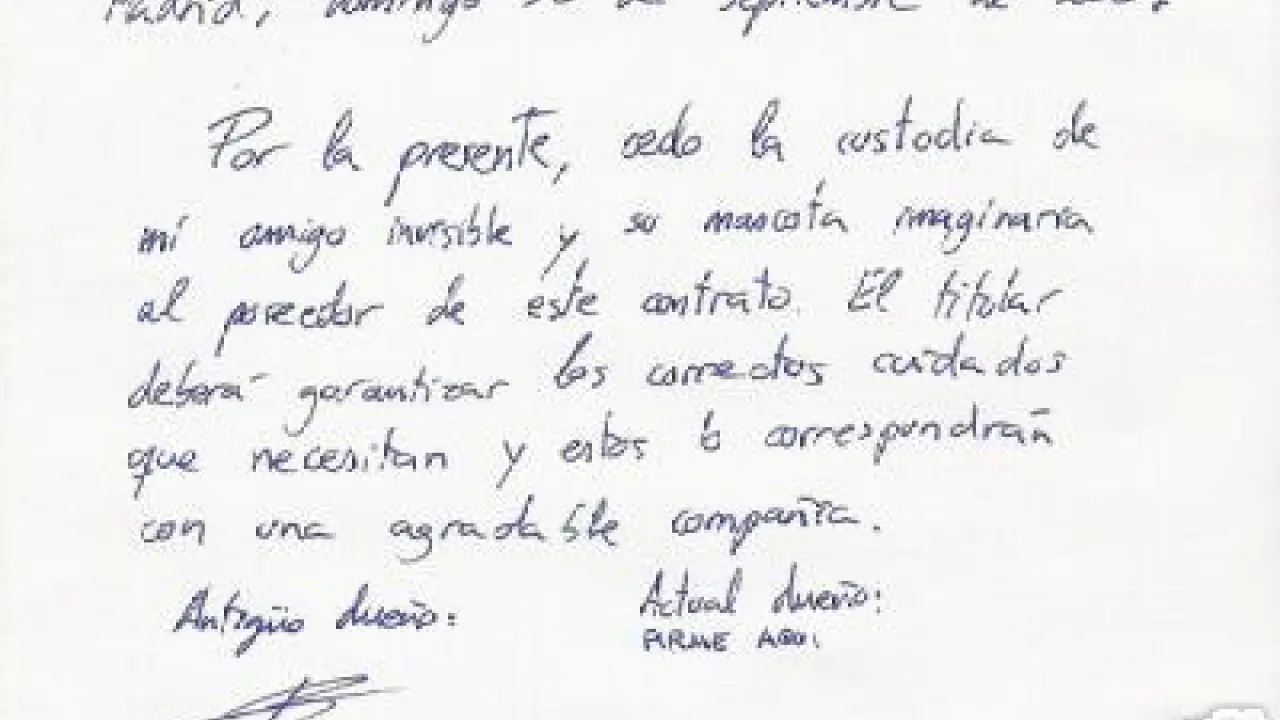 Madrid, domingo de septiembre de
Por la presente, cedo la custodia de
mi amigo invisible y su mascota imaginaria
al poseedor de este contrato. El titular
deberá garantizar los correctos cuidados
que necesitan y estos lo correspondrán
con una agradable compañía.
Antigüo dueño:
Actual dueño:
FIRME AQUÍ